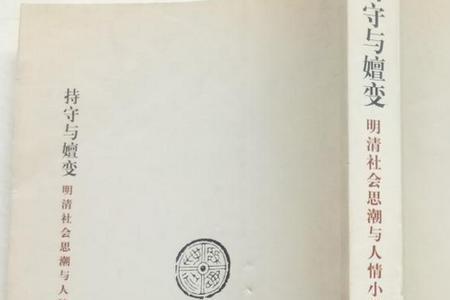 持守与嬗变
明清社会思潮与人情
守与嬗变
明清社会思潮与人情小